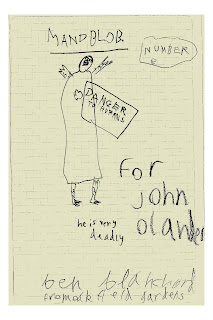 MANDBLOB
NUMBER
DANGER
TO HUMANS
For
john
olander
he is very
deadly
ben blanchard
from oakfield gardens